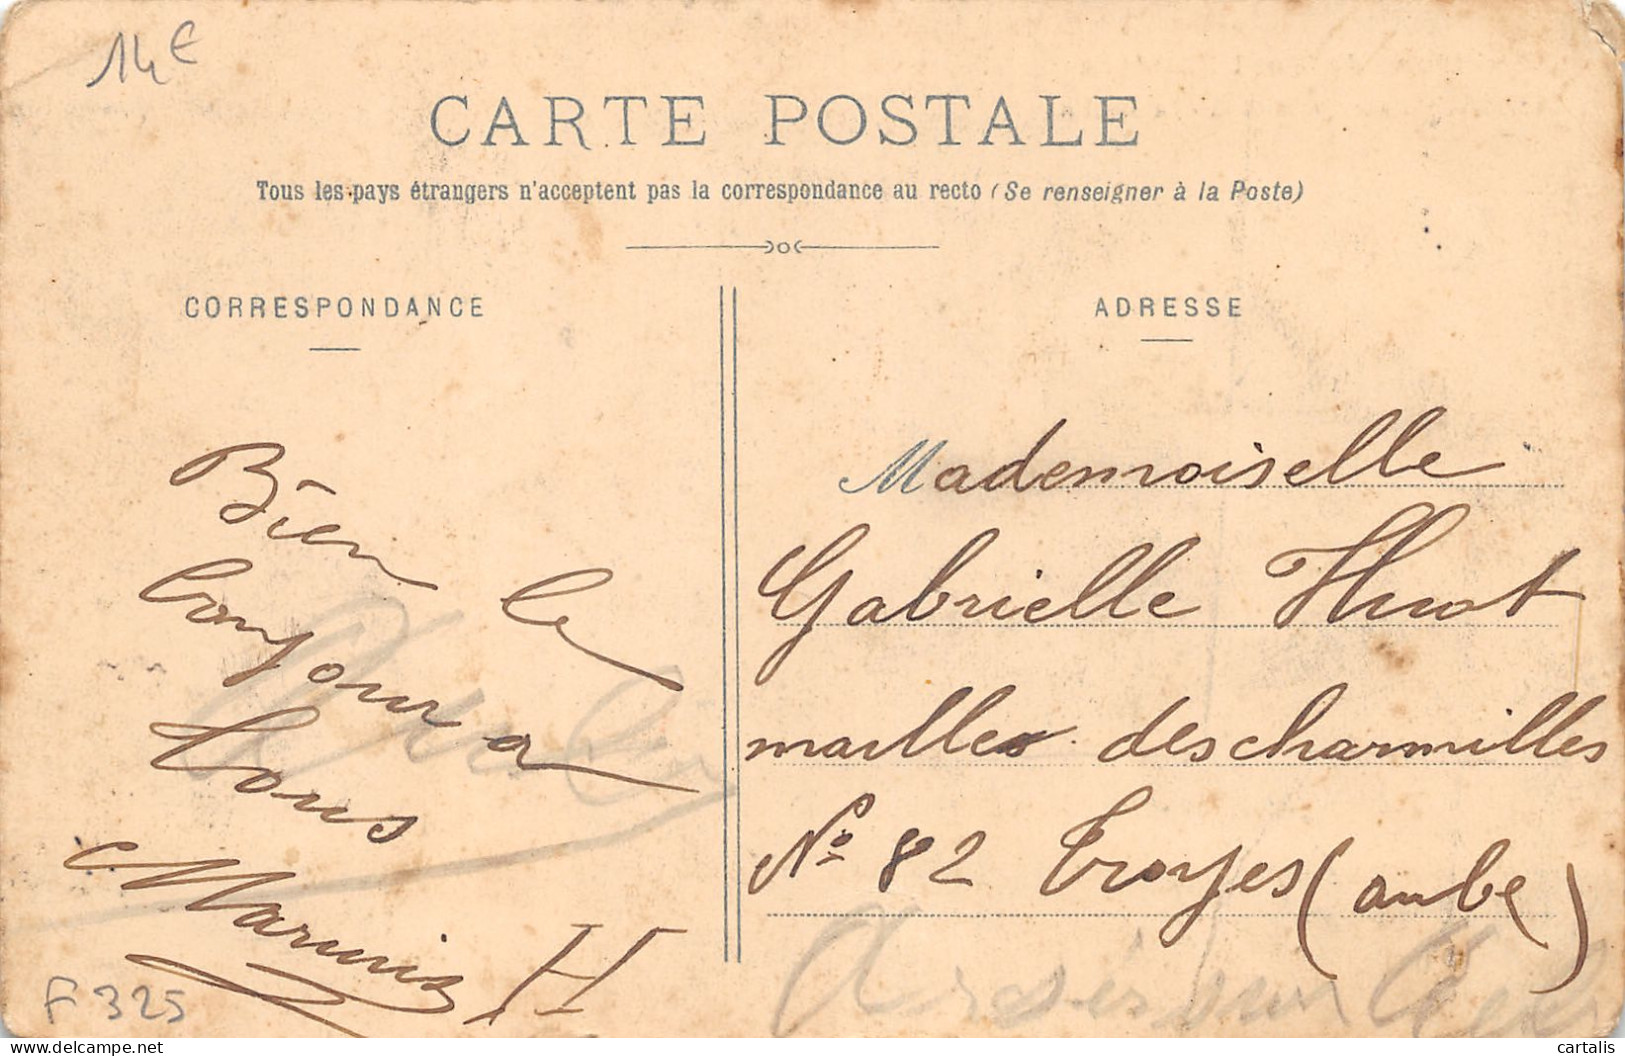 14€
CARTE POSTALE
Tous les pays étrangers n'acceptent pas la correspondance au recto (Se renseigner à la Poste)
CORRESPONDANCE
Bien le
bonjour a
tous
Marius H
F 325
ADRESSE
Mademoiselle
Gabrielle Huot
mailles des charmilles
No 82 Troyes (aube)
cartalis